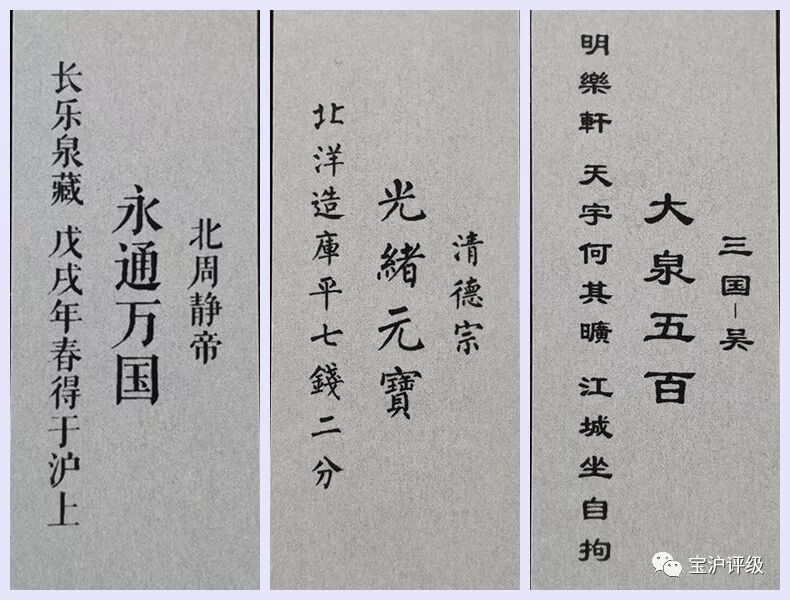 北周静帝
永通万国
长乐泉藏 戊戌年春得于沪上
清德宗
光緒元寶
北洋造庫平七錢二分
三国-吴
大泉五百
明樂軒 天宇何其曠 江城坐自拘
宝沪评级